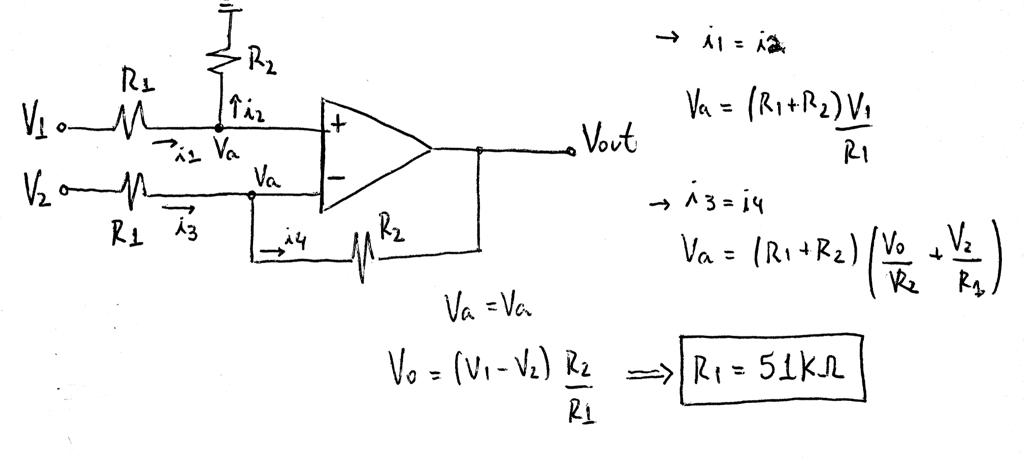 R2
R1
↑i2
V1
+
→i1
Va
Vout
V2
Va
−
R1
→i3
→i4
R2
→ i1 = i2
Va = (R1+R2) V1/R1
→ i3 = i4
Va = (R1+R2) (Vo/R2 + V2/R1)
Va = Va
Vo = (V1 - V2) R2/R1 ⟹ R1 = 51KΩ